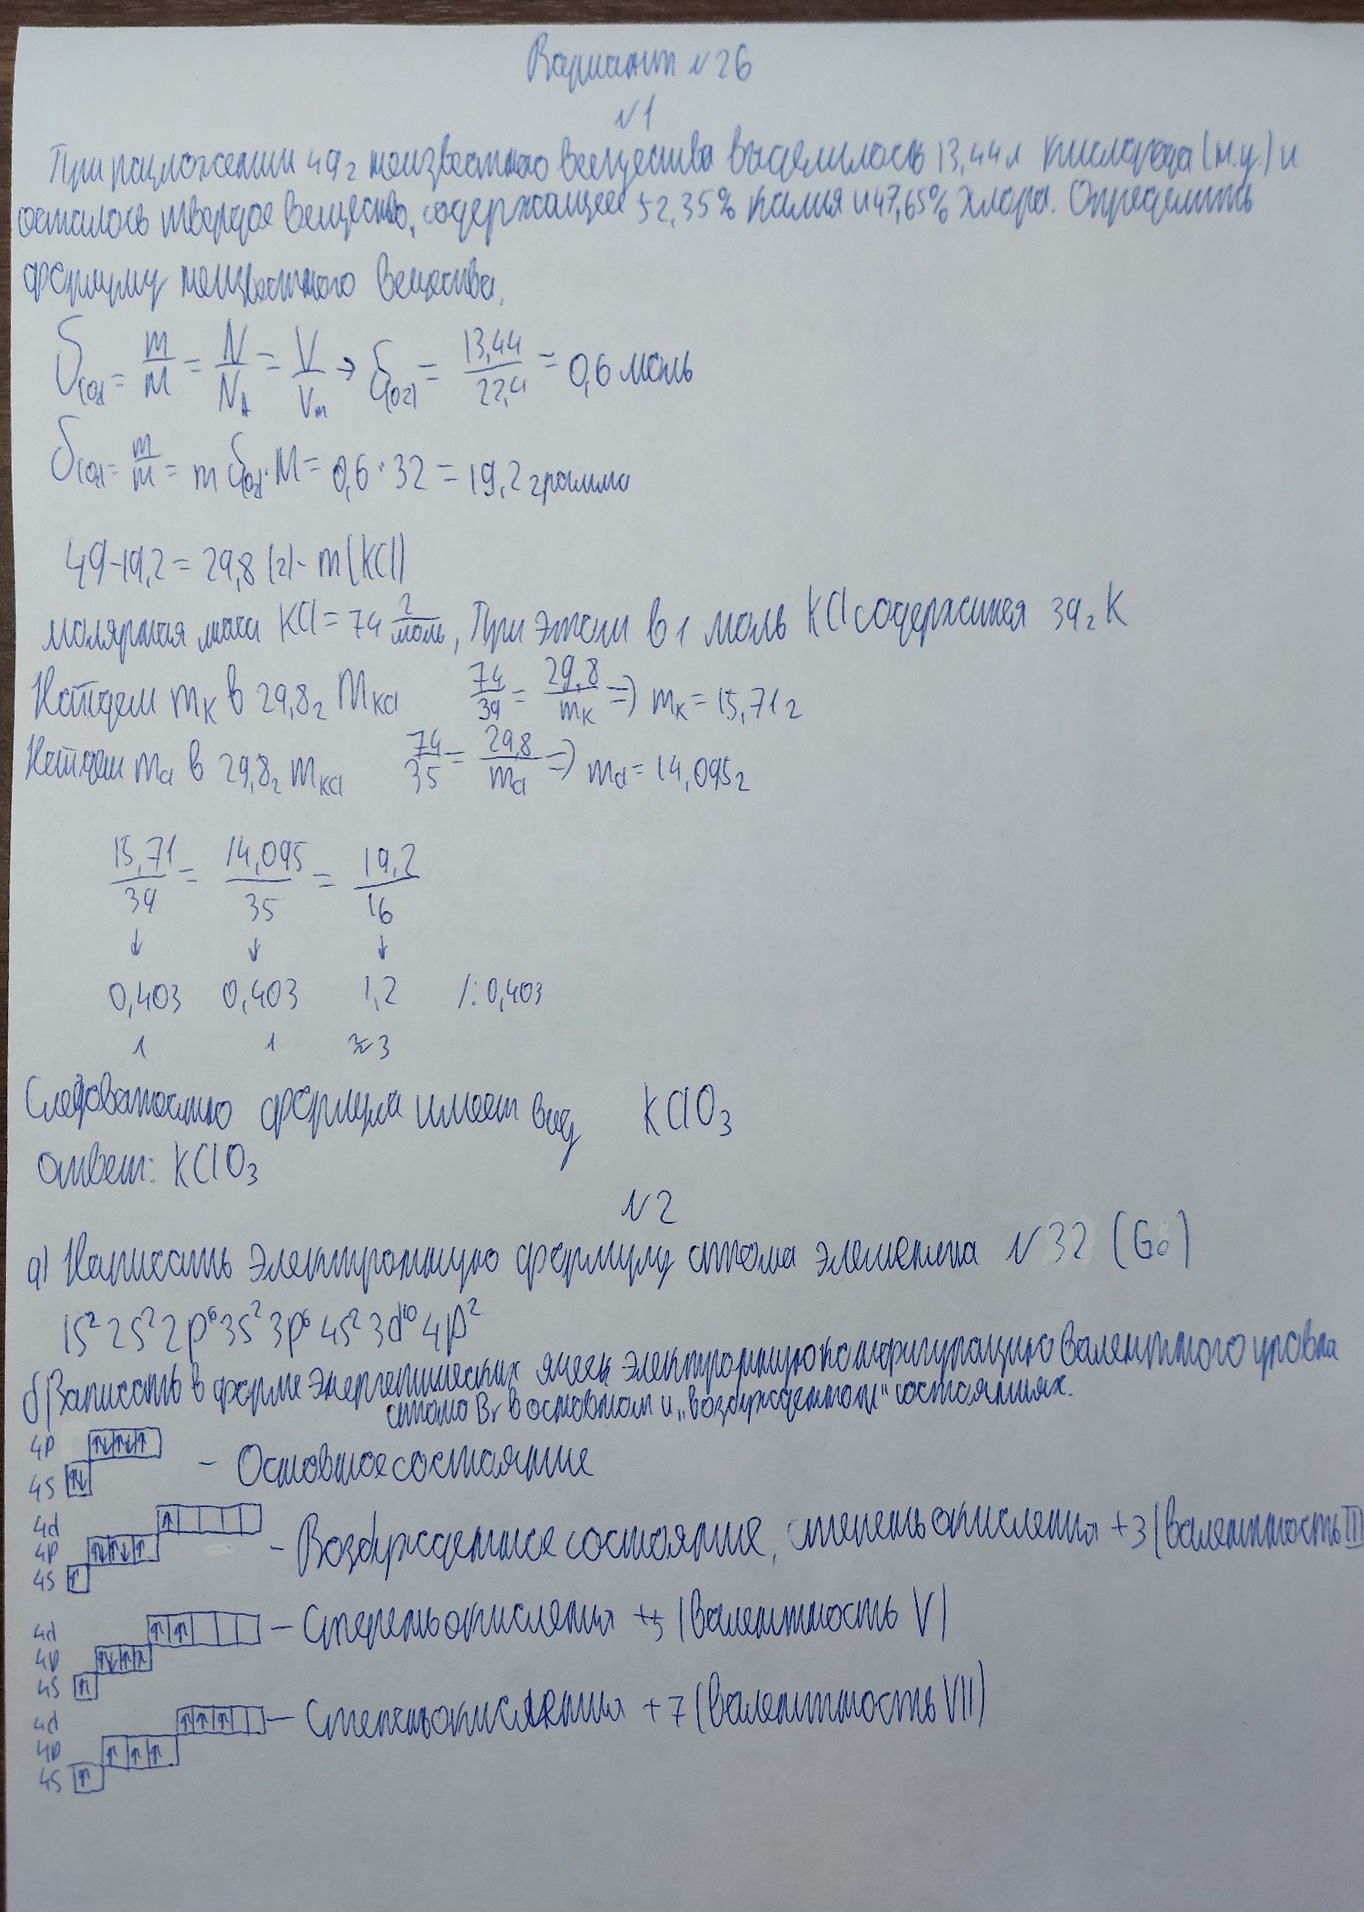 Вариант №26
№1
При разложении 49г неизвестного вещества выделилось 13,44л кислорода (н.у.) и
осталось твердое вещество, содержащее 52,35% калия и 47,65% хлора. Определить
формулу неизвестного вещества.
(O2) = m/M = N/NA = V/Vm → (O2) = 13,44/22,4 = 0,6 моль
(O2) = m/m = m (O2)·M = 0,6·32 = 19,2 грамма
49-19,2 = 29,8 (г) - m(KCl)
молярная масса KCl = 74 г/моль, При этом в 1 моль KCl содержится 39г K
Найдем mK в 29,8г mKCl 74/39 = 29,8/mK => mK = 15,71г
Найдем mCl в 29,8г mKCl 74/35 = 29,8/mCl => mCl = 14,095г
15,71/39 = 14,095/35 = 19,2/16
↓ ↓ ↓
0,403 0,403 1,2 /:0,403
1 1 ≈3
Следовательно формула имеет вид KClO3
ответ: KClO3
№2
а) Написать электронную формулу атома элемента №32 (Ge)
1s² 2s² 2p⁶ 3s² 3p⁶ 4s² 3d¹⁰ 4p²
б) Записать в форме энергетических ячеек электронную конфигурацию валентного уровня
атома Br в основном и „возбужденном" состояниях.
4p ↑↓ ↑↓ ↑
4s ↑↓ - Основное состояние
4d ↑
4p ↑↓ ↑↓ ↑ - Возбужденное состояние, степень окисления +3 (валентность III)
4s ↑
4d ↑ ↑ - Степень окисления +5 (валентность V)
4p ↑↓ ↑ ↑
4s ↑
4d ↑ ↑ ↑ - Степень окисления +7 (валентность VII)
4p ↑ ↑ ↑
4s ↑